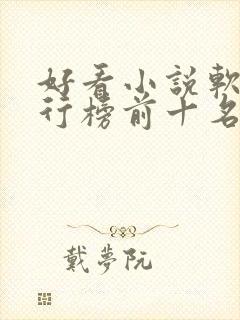 好看小說軟
行榜前十名
戴夢阮